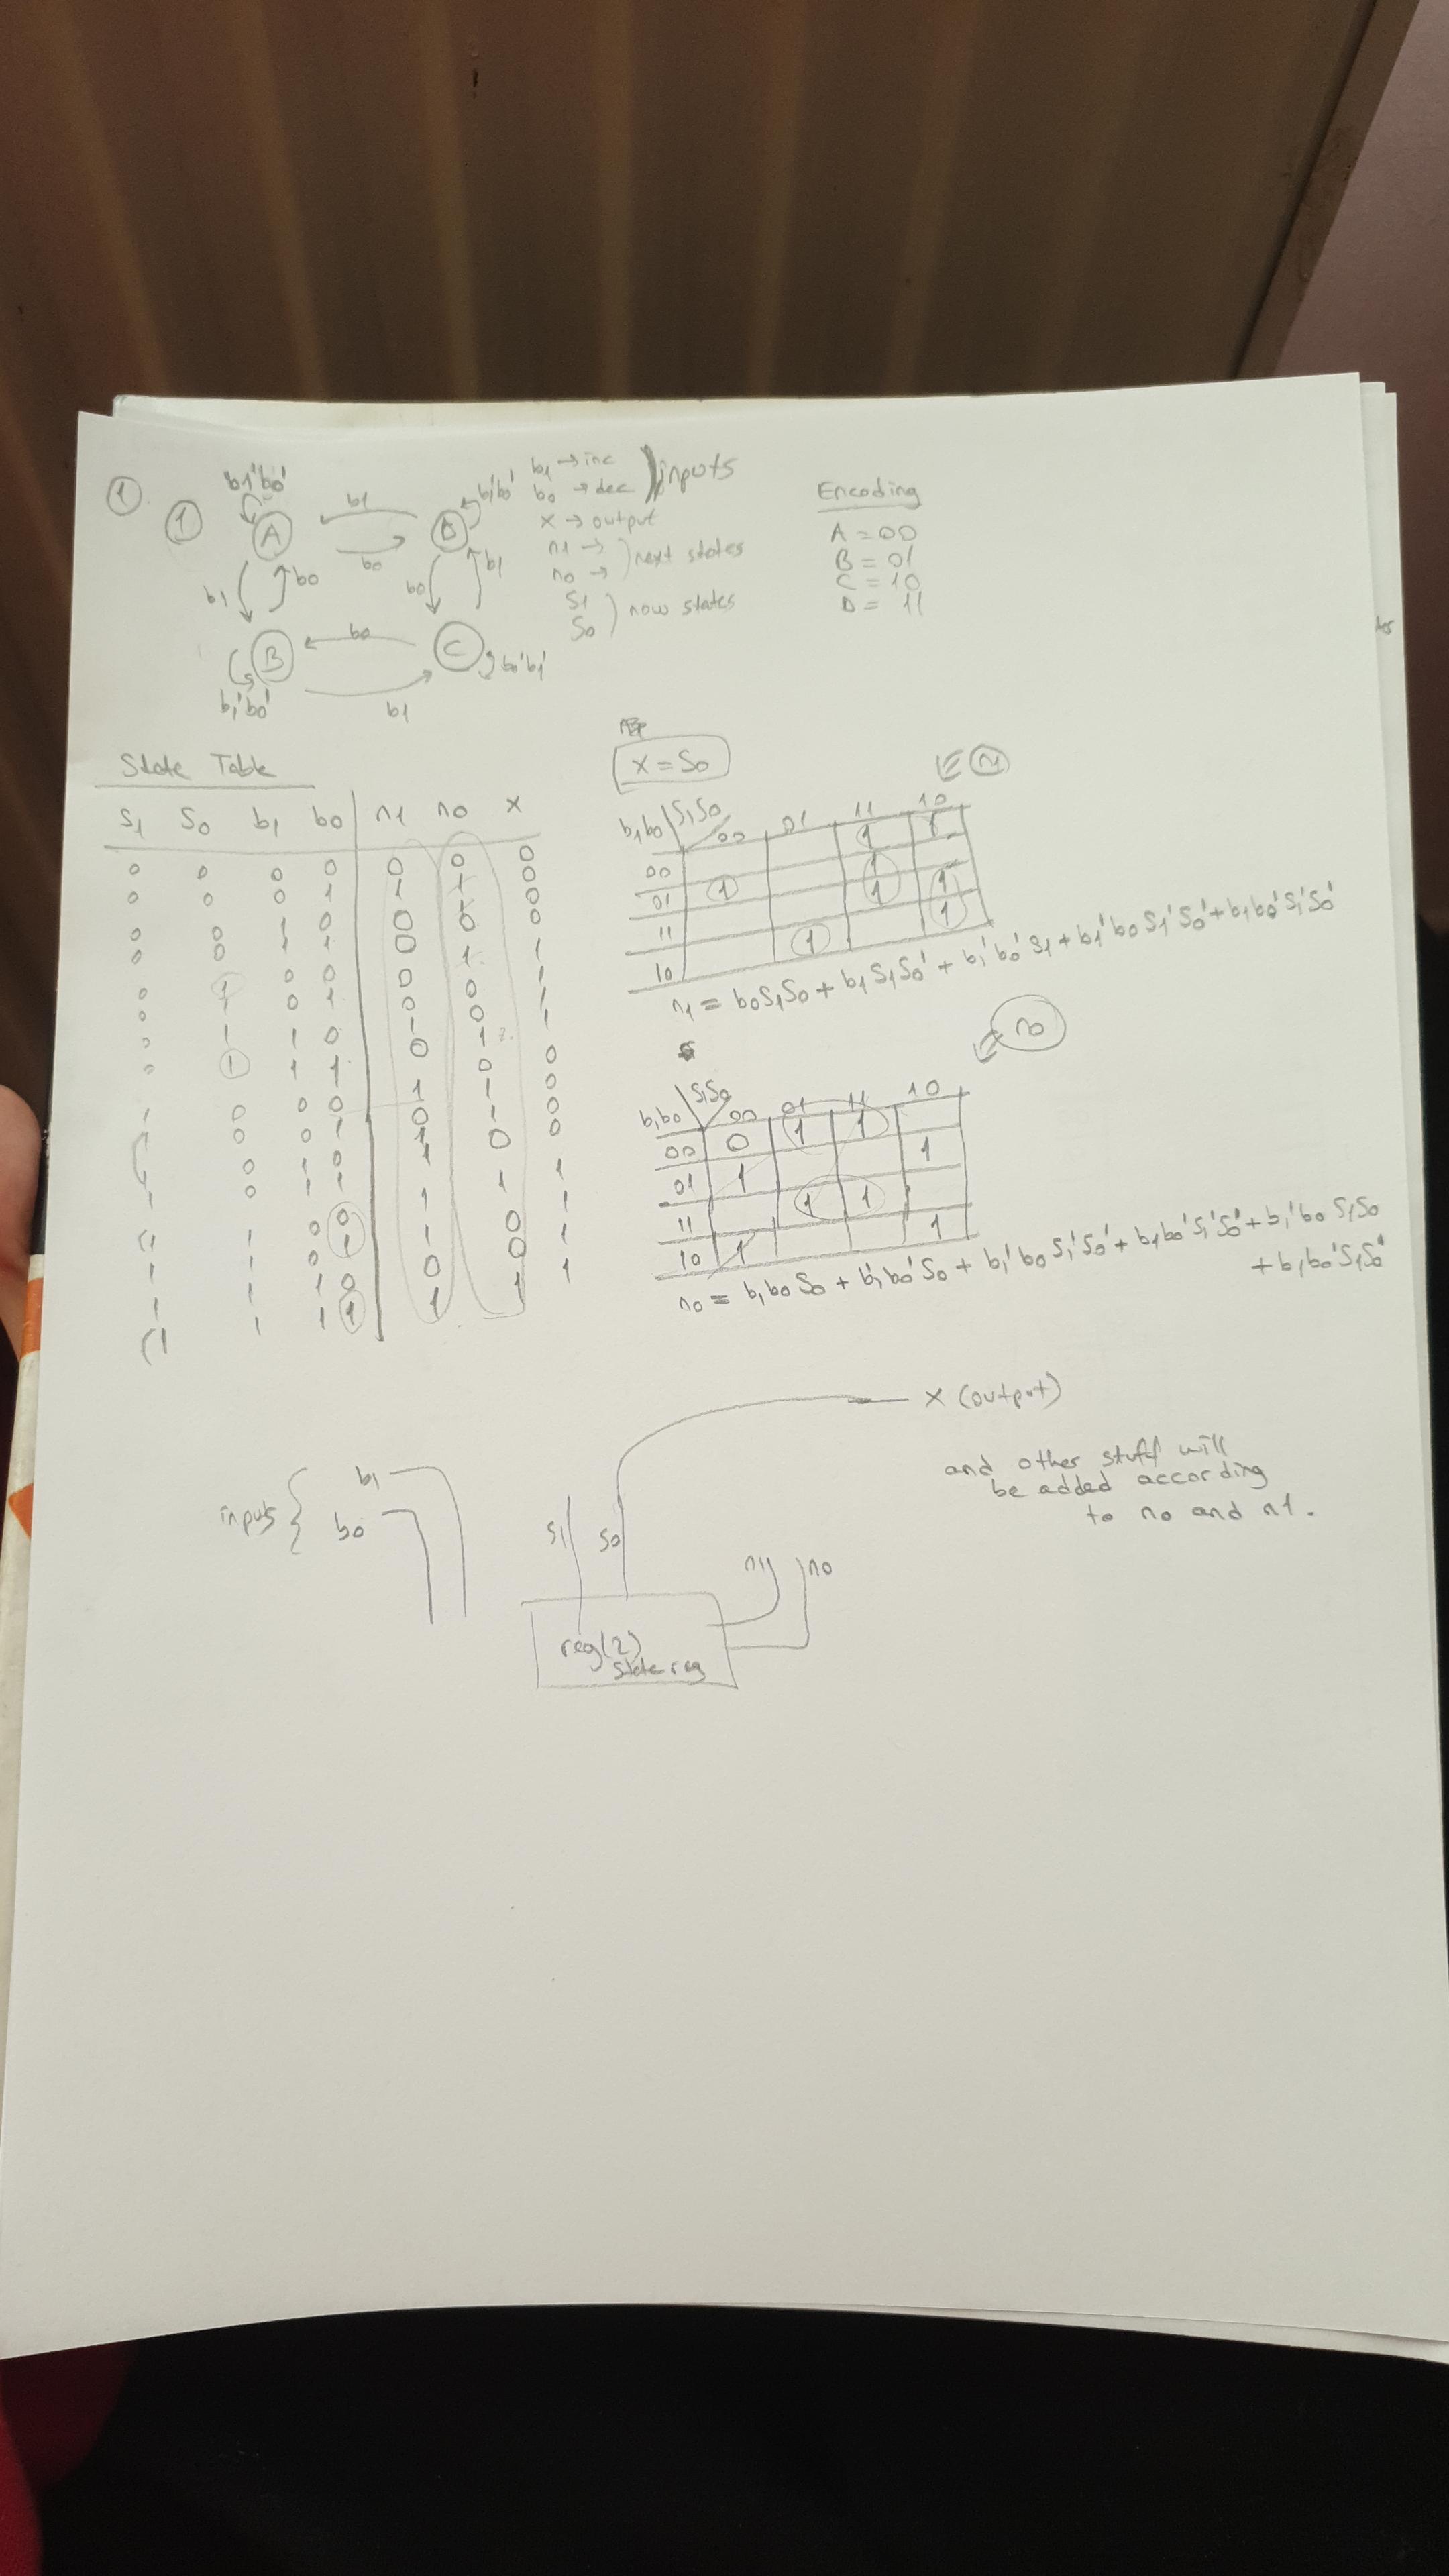 ① ① b1'b0' b1 b1'b0' b1 → inc } inputs
b0 → dec
x → output
n1 →
n0 → } next states
S1
S0 } now states
Encoding
A = 00
B = 01
C = 10
D = 11
A b1 D
b0
b1 b0 b0 b1
B b0 C b0'b1'
b1'b0' b1
State Table
S1 S0 b1 b0 n1 n0 x
0 0 0 0 0 0 0
0 0 0 1 1 1 0
0 0 1 0 0
0 0 1 1 0 0 0
0 1 0 0 0 1 1
0 1 0 1 0 0 1
0 1 1 0 1 0 1
0 1 1 1 0 1 1
1 0 0 0 1 0 0
1 0 0 1 0 1 0
1 0 1 0 1 1 0
1 0 1 1 1 0 0
1 1 0 0 1 1 1
1 1 0 1 1 0 1
1 1 1 0 0 0 1
1 1 1 1 1 1 1
x = S0
n1
b1b0 S1S0 00 01 11 10
00 1 1
01 1 1
11 1 1
10 1 1
n1 = b0S1S0 + b1S1S0' + b1'b0'S1 + b1'b0S1'S0' + b1b0'S1'S0
n0
b1b0 S1S0 00 01 11 10
00 0 1 1
01 1 1
11 1 1
10 1 1
n0 = b1b0S0 + b1'b0'S0 + b1'b0S1'S0' + b1b0'S1'S0' + b1'b0S1S0
+ b1b0'S1S0'
x (output)
and other stuff will
be added according
to n0 and n1.
inputs { b1
b0
S1 S0
n1 n0
reg(2)
state reg